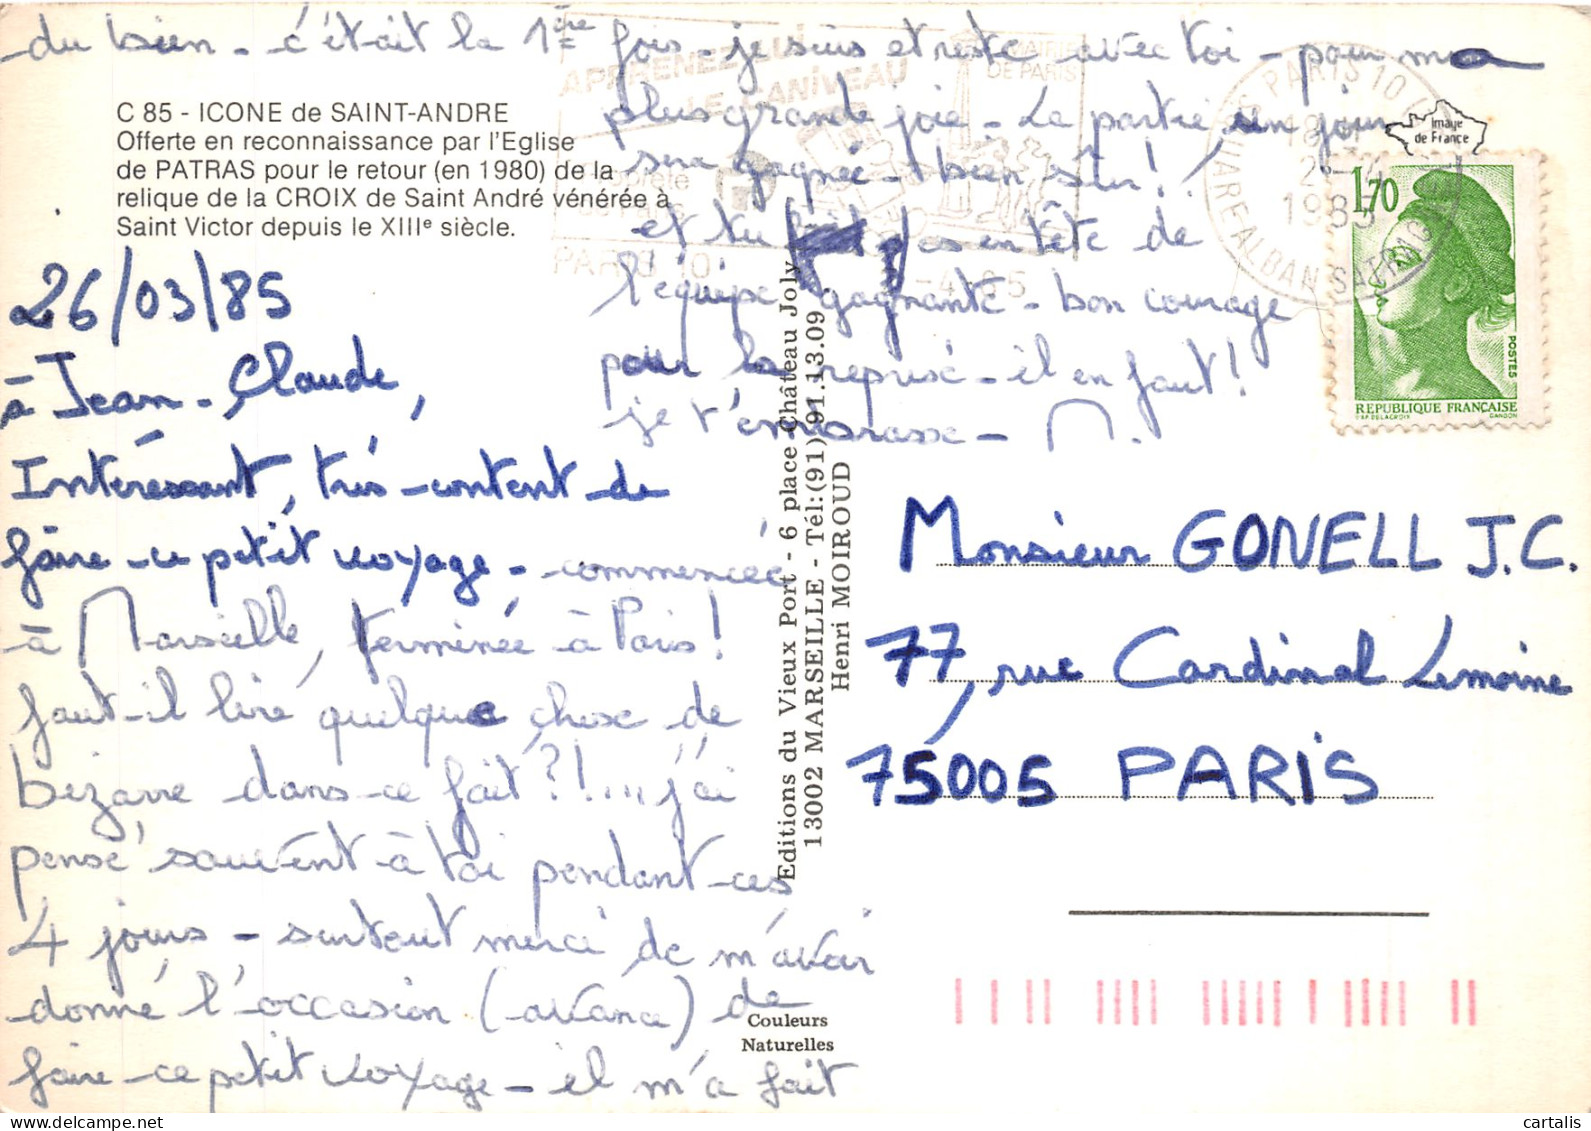 du bien - c'était la 1ère fois - je suis et reste avec toi - pour ma
plus grande joie - La partie un jour
sera gagnée - bien sûr !
et tu en tête de
l'équipe gagnante - bon courage
pour la reprise - il en faut !
je t'embrasse - N.
C 85 - ICONE de SAINT-ANDRE
Offerte en reconnaissance par l'Eglise
de PATRAS pour le retour (en 1980) de la
relique de la CROIX de Saint André vénérée à
Saint Victor depuis le XIIIe siècle.
26/03/85
à Jean-Claude,
Intéressant, très content de
faire ce petit voyage - commencée
à Marseille, terminée à Paris !
faut-il lire quelque chose de
bizarre dans ce fait ?!... j'ai
pensé souvent à toi pendant ces
4 jours - surtout merci de m'avoir
donné l'occasion (avance) de
faire ce petit voyage - il m'a fait
APPRENEZ-LUI
LE CANIVEAU
MAIRIE
DE PARIS
PARIS 10
PARIS 10
1985
GARE ALBAN SATRAGNE
Image
de France
1,70
POSTES
REPUBLIQUE FRANÇAISE
D'AP. DELACROIX
GANDON
Editions du Vieux Port - 6 place Château Joly
13002 MARSEILLE - Tél: (91) 91.13.09
Henri MOIROUD
Monsieur GONELL J.C.
77, rue Cardinal Lemoine
75005 PARIS
Couleurs
Naturelles
cartalis